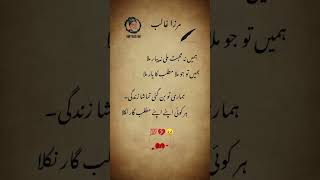 مرزا غالب
ہمیں نہ محبت ملی نہ پیار ملا
ہمیں تو جو ملا مطلب کا یار ملا
ہماری تو بن گئی تماشا زندگی۔
ہر کوئی اپنے اپنے مطلب گار نکلا